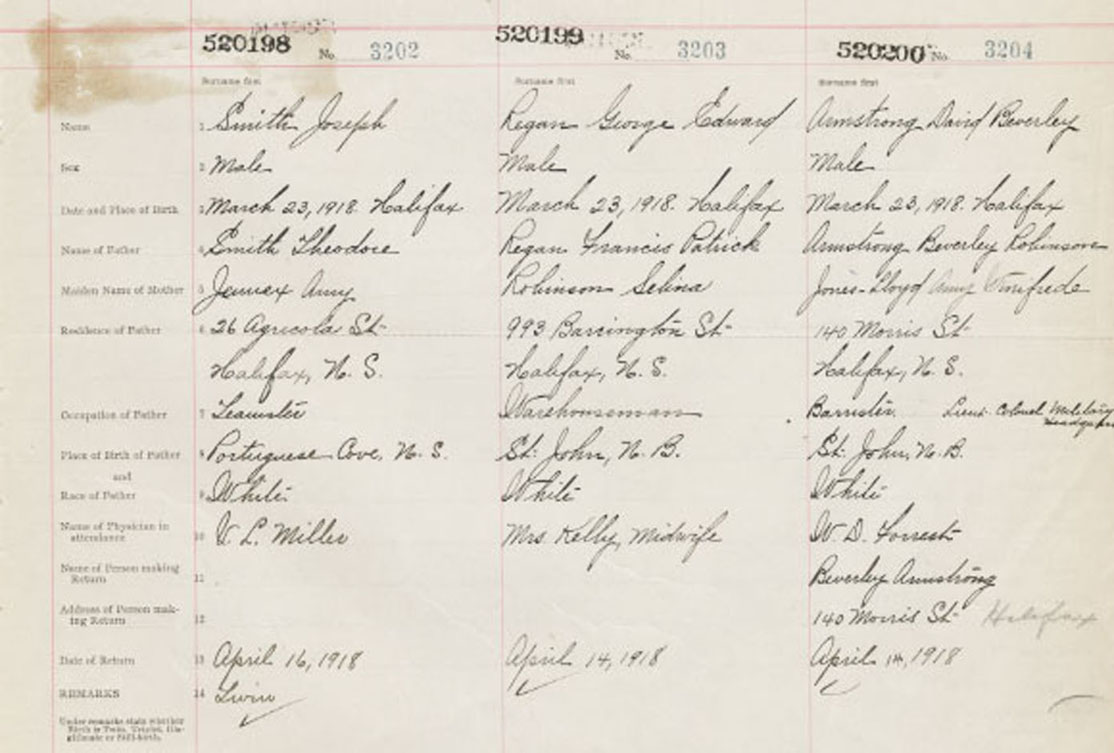 520198 No. 3202 520199 No. 3203 520200 No. 3204
Surname first Surname first Surname first
Name 1 Smith Joseph Regan George Edward Armstrong David Beverley
Sex 2 Male Male Male
Date and Place of Birth 3 March 23, 1918. Halifax March 23, 1918. Halifax March 23, 1918. Halifax
Name of Father 4 Smith Theodore Regan Francis Patrick Armstrong Beverley Robinson
Maiden Name of Mother 5 Jennex Amy Robinson Selina Jones-Lloyd Amy Winifrede
Residence of Father 6 26 Agricola St 993 Barrington St 140 Morris St
Halifax, N. S. Halifax, N. S. Halifax, N. S.
Occupation of Father 7 Teamster Warehouseman Barrister. Lieut. Colonel Military
Place of Birth of Father 8 Portuguese Cove, N. S. St. John, N. B. St. John, N. B.
and
Race of Father 9 White White White
Name of Physician in
attendance 10 V. L. Miller Mrs Kelly, Midwife W. D. Forrest
Name of Person making
Return 11 Beverley Armstrong
Address of Person mak-
ing Return 12 140 Morris St Halifax
Date of Return 13 April 16, 1918 April 14, 1918 April 14, 1918
REMARKS 14 Twin
Under remarks state whether
Birth is Twin, Triplet, Ille-
gitimate or Still-birth.